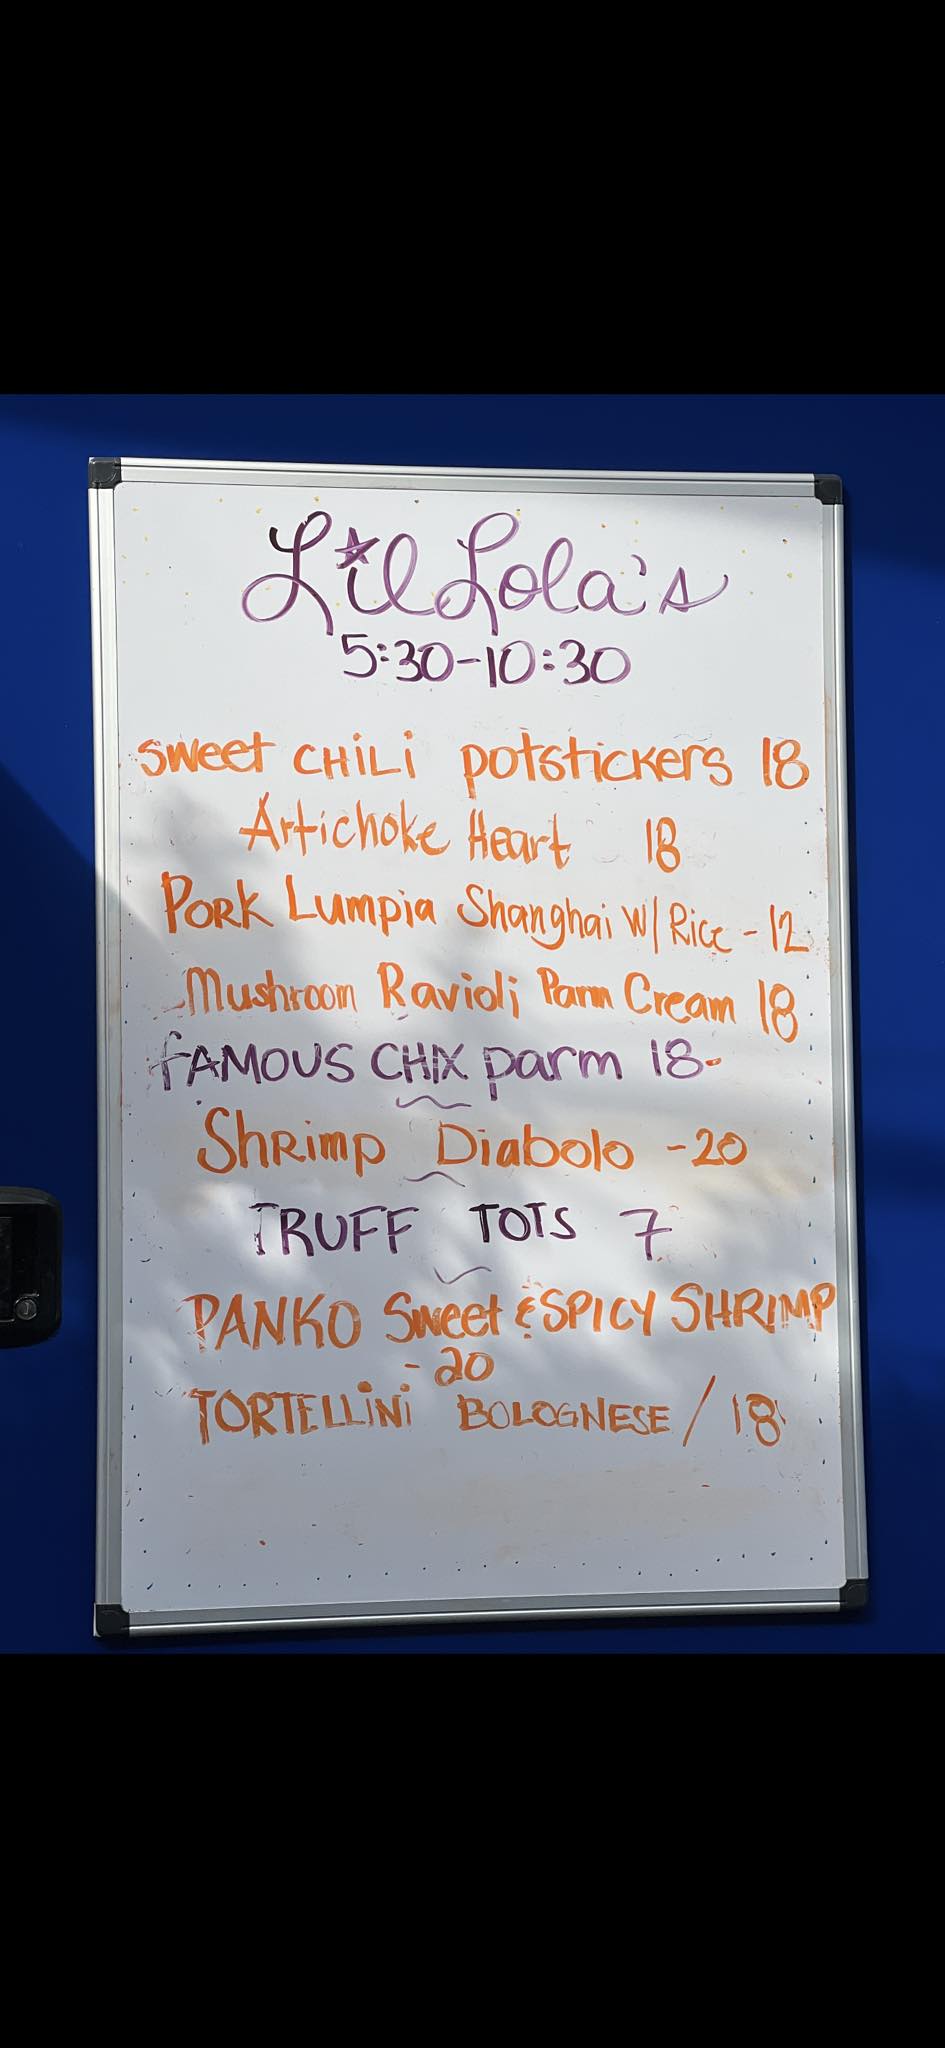 Lil Lola's
5:30-10:30
sweet CHiLi potstickers 18
Artichoke Heart 18
PORK Lumpia Shanghai W/ Rice - 12
Mushroom Ravioli Parm Cream 18
fAMOUS CHIX parm 18-
Shrimp Diabolo -20
TRUFF TOTS 7
PANKO Sweet & SPICY SHRIMP
-20
TORTELLiNi BOLOGNESE / 18